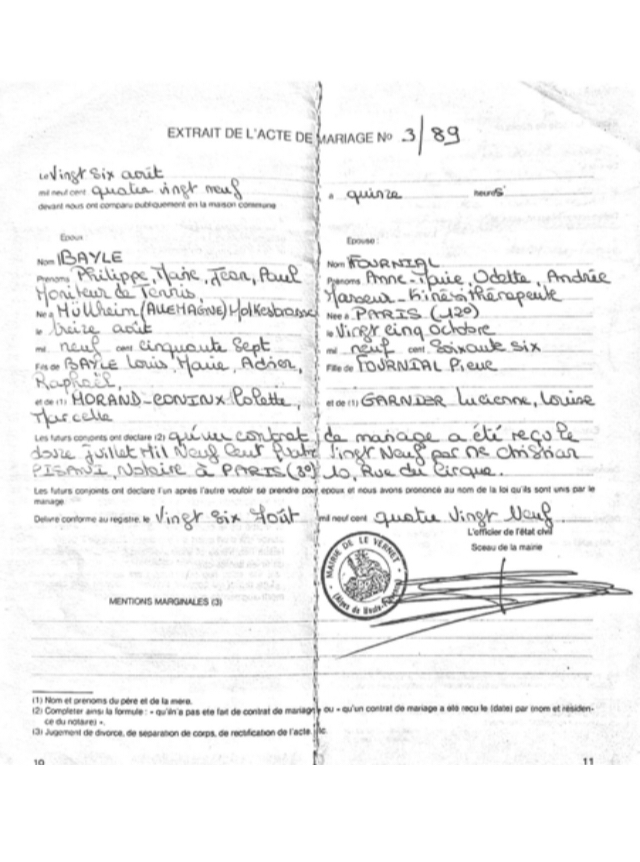 EXTRAIT DE L'ACTE DE MARIAGE No 3/89
le Vingt Six août
mil neuf cent quatre vingt neuf à quinze heures
devant nous ont comparu publiquement en la maison commune
Epoux : Epouse :
Nom BAYLE
Prénoms Philippe, Marie, Jean, Paul
Moniteur de Tennis
Né à Müllheim (ALLEMAGNE)
le treize août
mil neuf cent cinquante Sept
Fils de BAYLE Louis, Marie, Adrien,
Raphaël,
et de (1) MORAND-CONINX Colette,
Marcelle
Nom FOURNIAL
Prénoms Anne-Marie, Odette, Andrée
Masseur-Kinésithérapeute
Née à PARIS (12o)
le Vingt cinq Octobre
mil neuf cent Soixante six
Fille de FOURNIAL Pierre
et de (1) GARNIER Lucienne, Louise
Les futurs conjoints ont déclaré (2) qu'un contrat de mariage a été reçu le
douze juillet Mil Neuf Cent Quatre Vingt Neuf par Me Christian
PISANI, Notaire à PARIS (3o) 10, Rue du Cirque.
Les futurs conjoints ont déclaré l'un après l'autre vouloir se prendre pour époux et nous avons prononcé au nom de la loi qu'ils sont unis par le
mariage.
Délivré conforme au registre, le Vingt Six Août mil neuf cent quatre Vingt Neuf.
L'officier de l'état civil
Sceau de la mairie
MAIRIE DE LE VERNET
(Alpes de Haute-Provence)
MENTIONS MARGINALES (3)
(1) Nom et prénoms du père et de la mère.
(2) Compléter ainsi la formule : « qu'il n'a pas été fait de contrat de mariage » ou « qu'un contrat de mariage a été reçu le (date) par (nom et résiden-
ce du notaire) ».
(3) Jugement de divorce, de séparation de corps, de rectification de l'acte, etc.
10 11